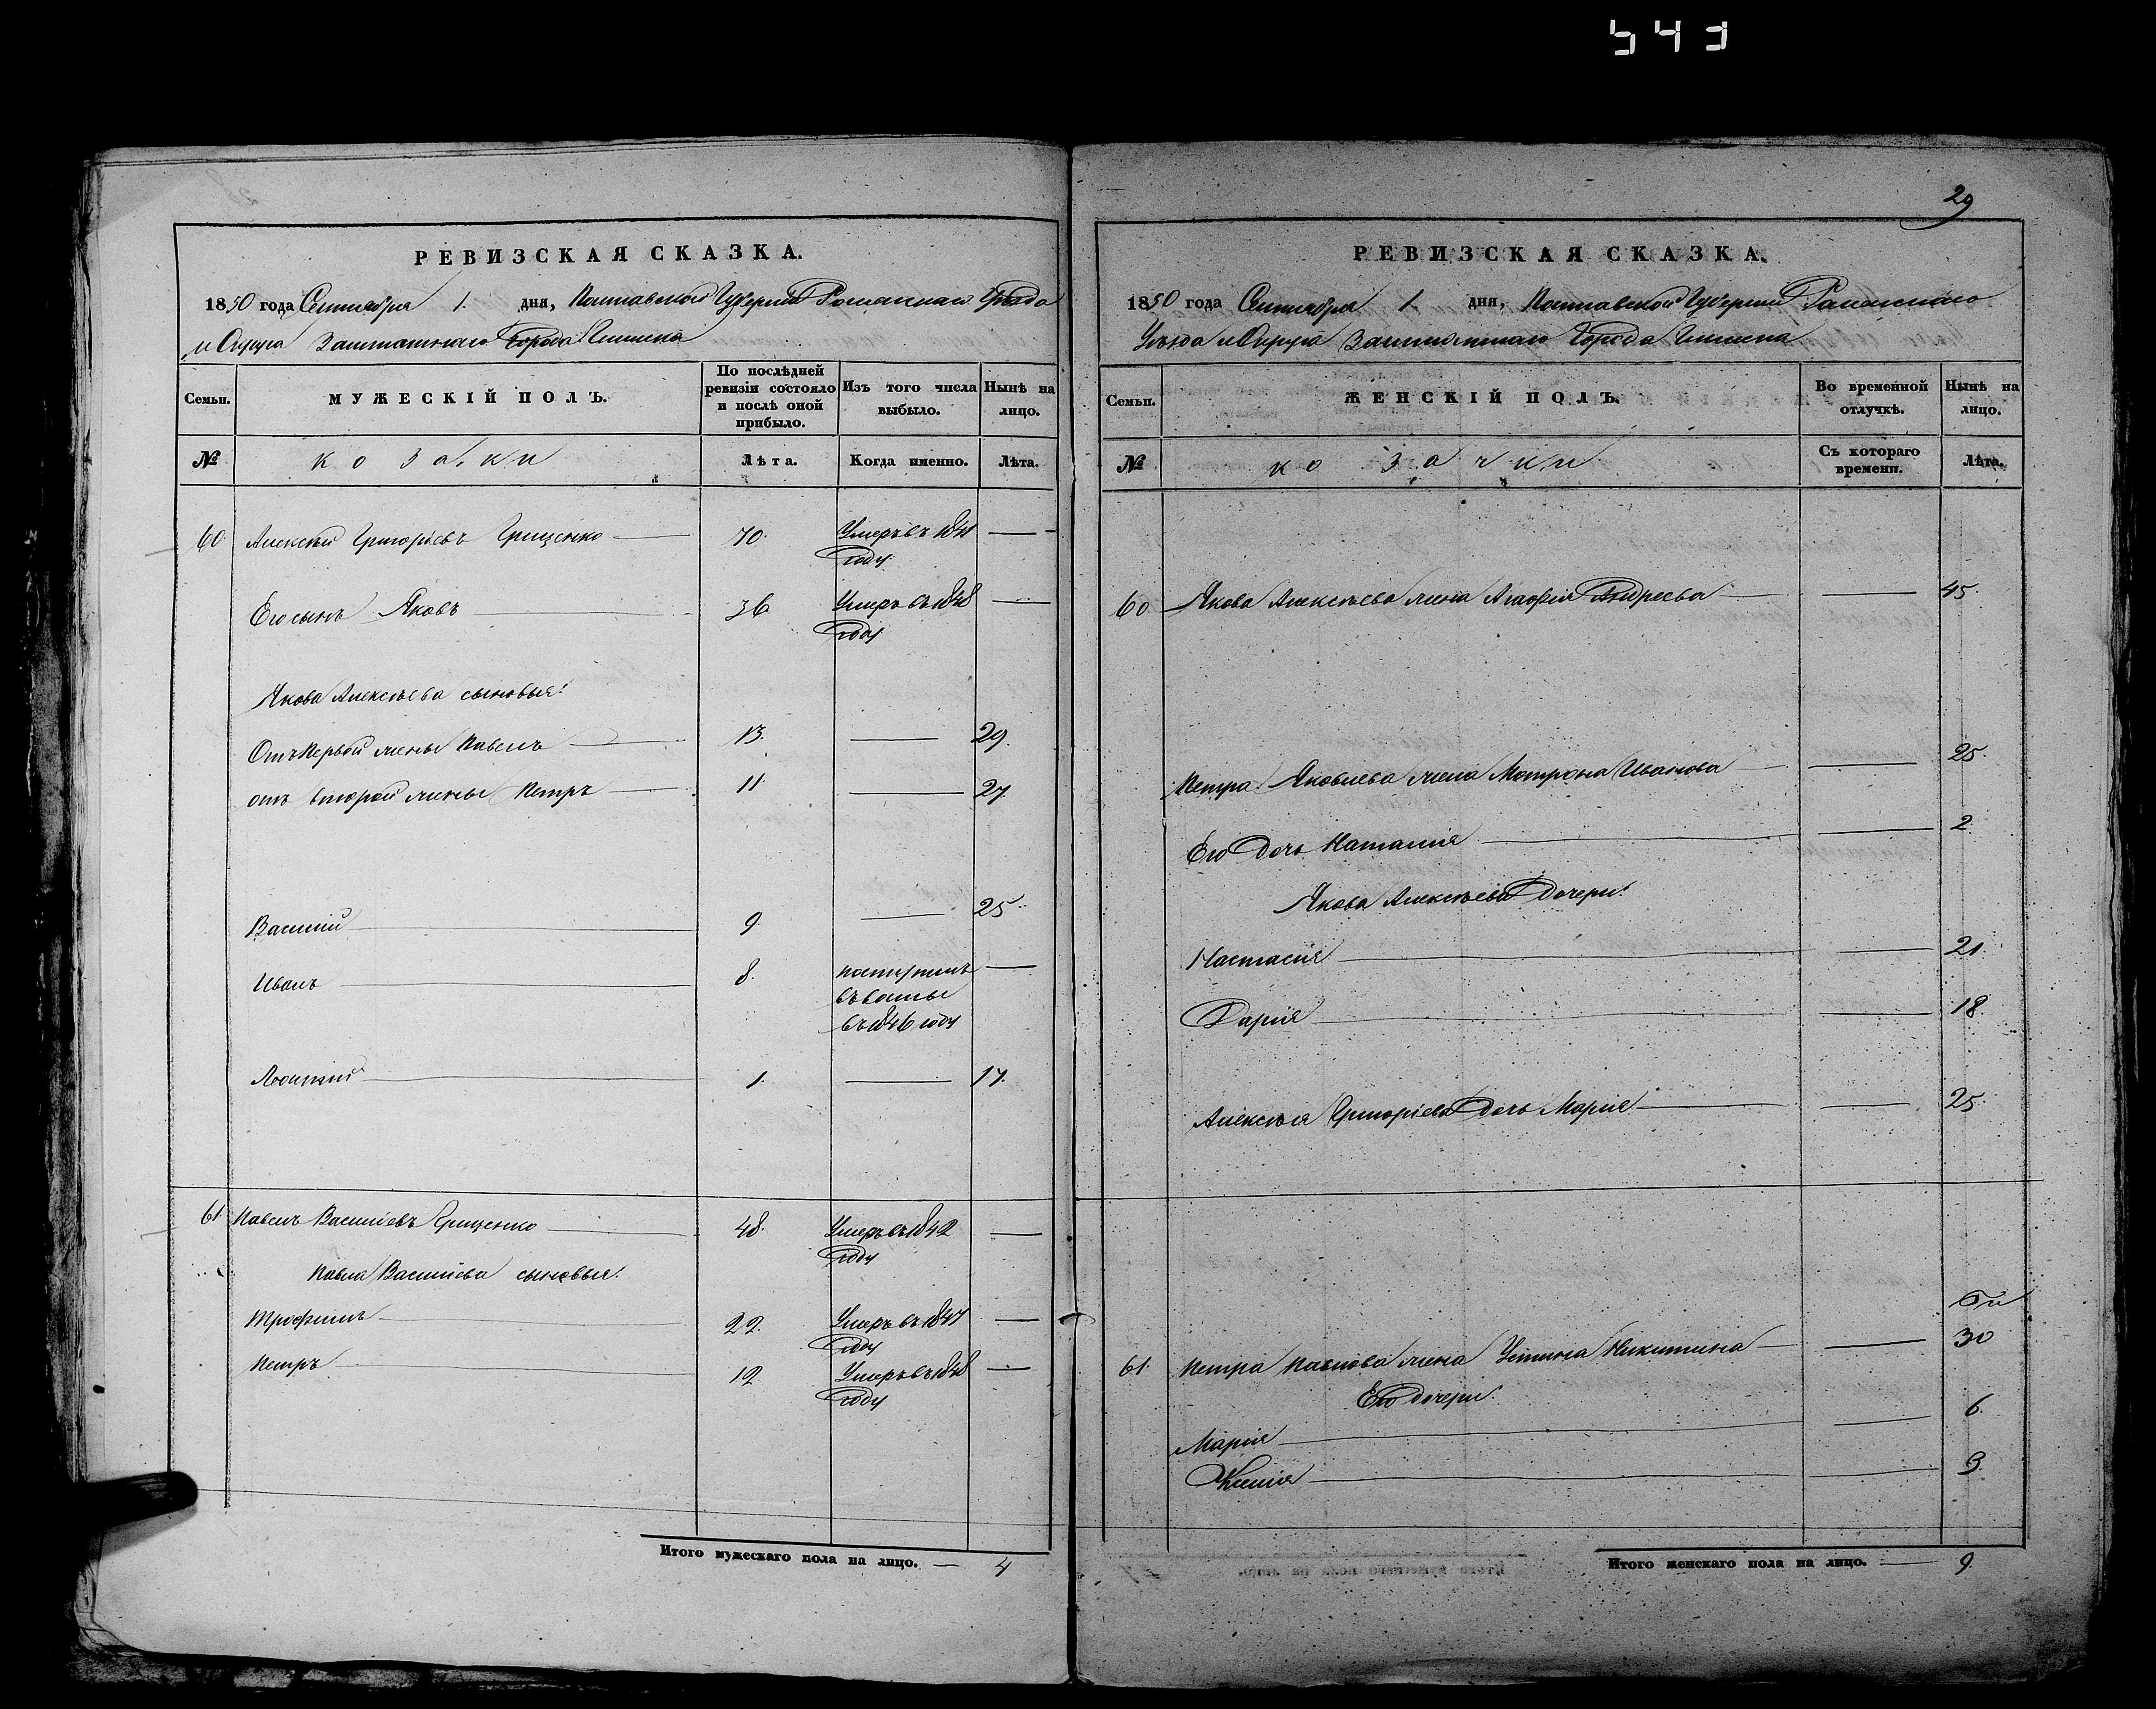 543
29
РЕВИЗСКАЯ СКАЗКА.
1850 года Сентября 1. дня, Полтавской Губернии Роменскаго Уезда
и Округа Заштатнаго Города Глинска
Семьи. МУЖЕСКІЙ ПОЛЪ. По послѣдней ревизіи состояло и послѣ оной прибыло. Изъ того числа выбыло. Нынѣ на лицо.
№ козаки Лѣта. Когда именно. Лѣта.
60 Алексѣй Григорьевъ Грищенко 70. Умеръ въ 1841 году —
Его сынъ Яковъ 36 Умеръ въ 1848 году —
Якова Алексѣева сыновья:
Отъ первой жены Павелъ 13. — 29.
отъ второй жены Петръ 11 — 27.
Василий 9. — 25.
Иванъ 8. въ 1846 году —
1. — 17.
61 Павелъ Василіевъ Грищенко 48. Умеръ въ 1842 году —
Павла Василіева сыновья.
Трофимъ 22. Умеръ въ 1847 году —
Петръ 12 Умеръ въ 1848 году —
Итого мужескаго пола на лицо. — 4
РЕВИЗСКАЯ СКАЗКА.
1850 года Сентября 1. дня, Полтавской Губернии Роменскаго
Уѣзда и Округа Заштатнаго Города Глинска
Семьи. ЖЕНСКІЙ ПОЛЪ. Во временной отлучкѣ. Нынѣ на лицо.
№ козачки Съ котораго времени. Лѣта.
60 Якова Алексѣева жена Агафія Андреева — 45.
Петра Яковлева жена Матрона Иванова — 25.
Его дочь Наталія — 2.
Якова Алексѣева дочери:
Настасія — 21.
Дарія — 18.
Алексѣя Григоріева дочь Марія — 25.
61. Петра Павлова жена Устина Никитина — 30
Его дочери.
Марія — 6.
Ксенія — 3.
Итого женскаго пола на лицо. — 9.